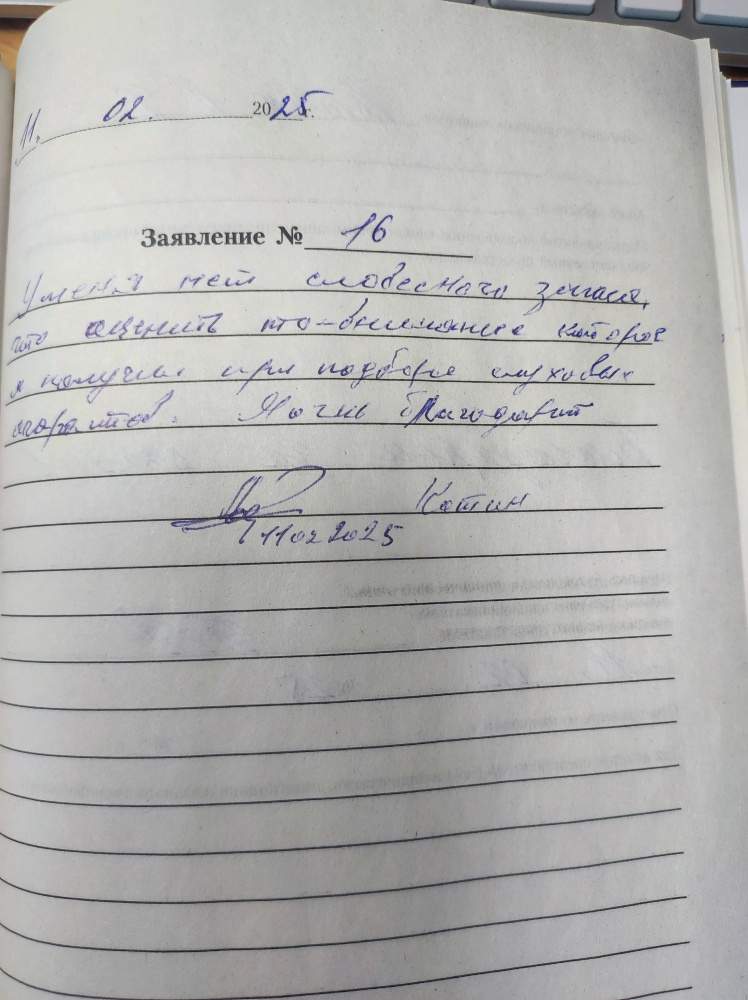 11. 02. 2025г.
Заявление № 16
У меня нет словесного запаса,
что оценить это внимание которое
я получил при подборе слуховых
аппаратов. Я очнь благодарит
Котин
11022025